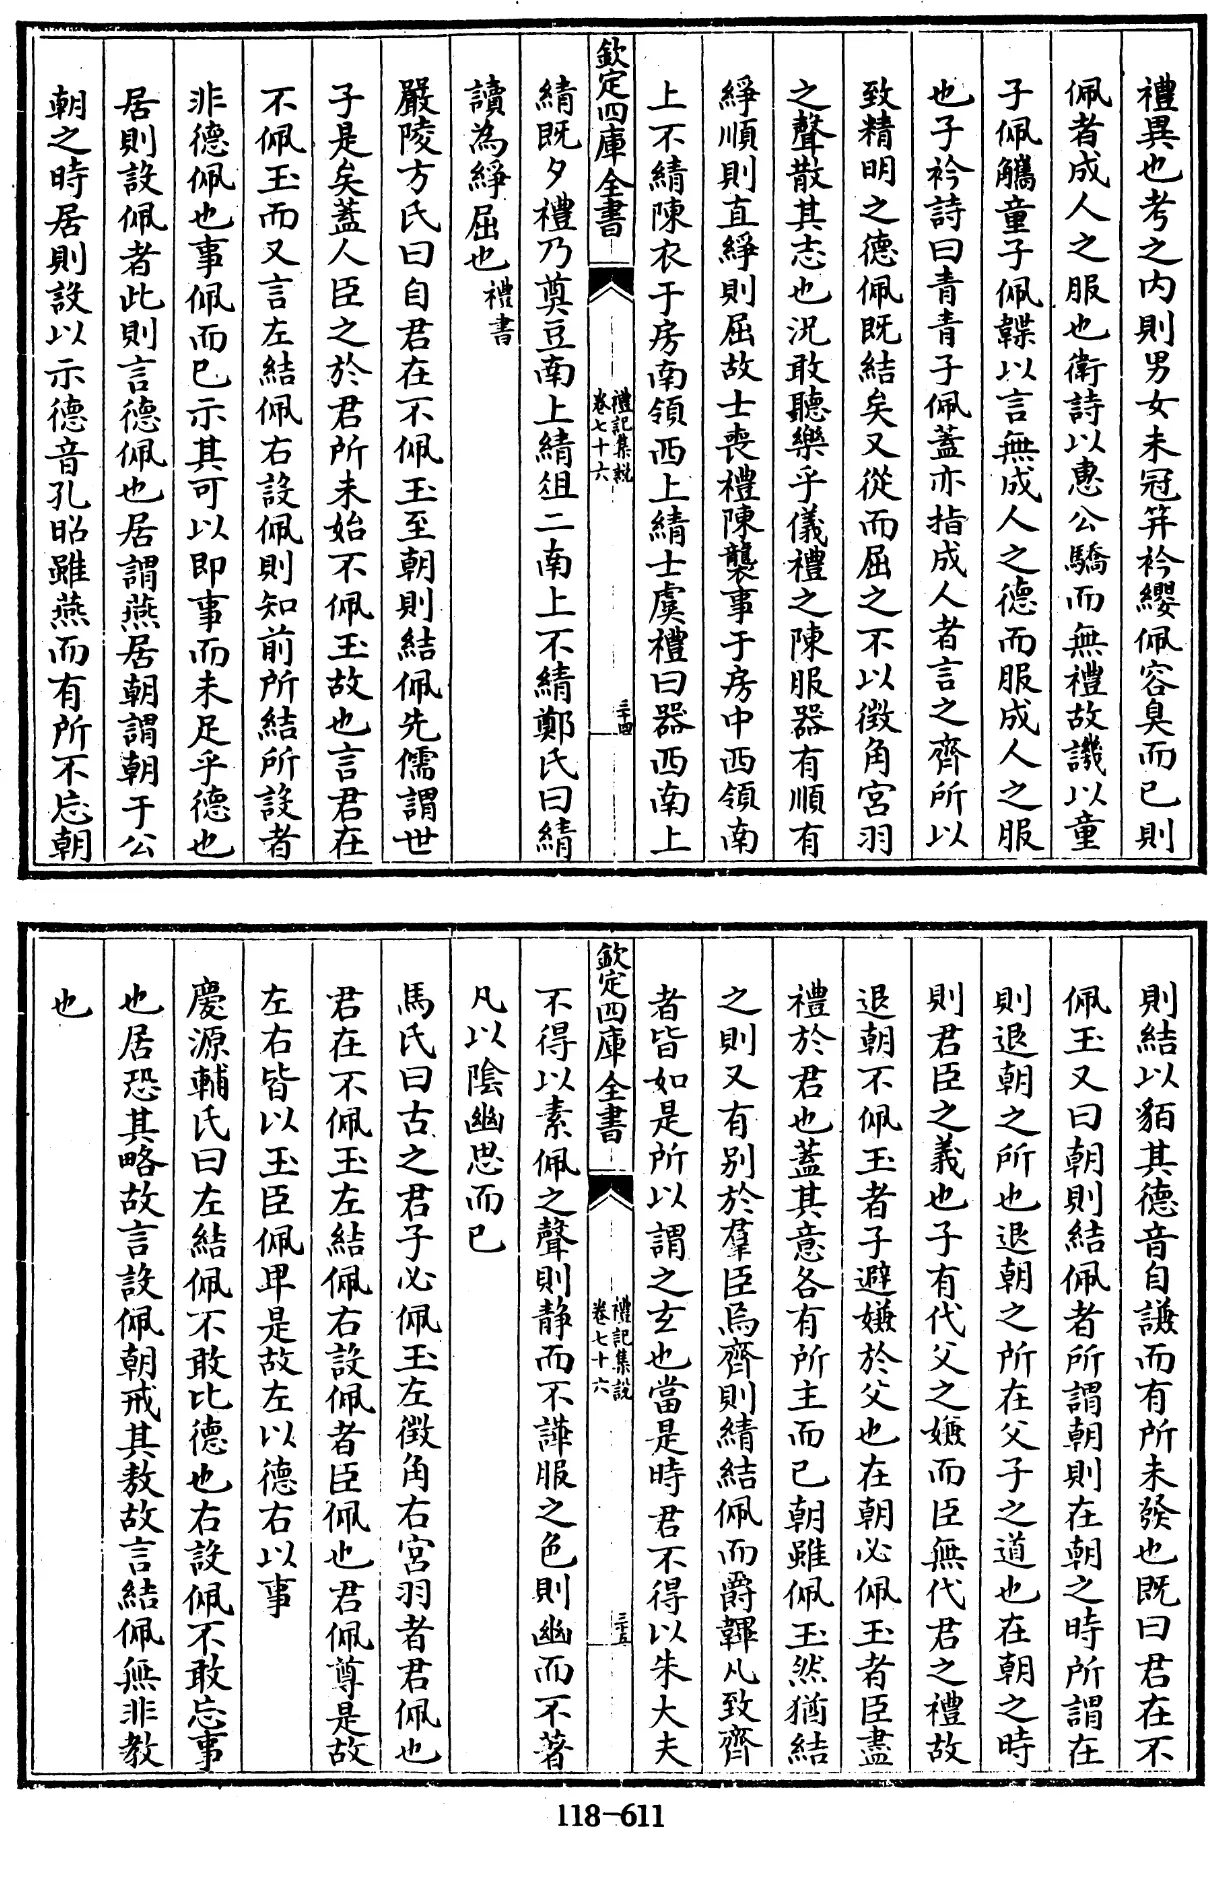 禮異也考之内則男女未冠笄衿纓佩容臭而已則
佩者成人之服也衛詩以惠公驕而無禮故譏以童
子佩觿童子佩韘以言無成人之德而服成人之服
也子衿詩曰青青子佩蓋亦指成人者言之齊所以
致精明之德佩既結矣又從而屈之不以徴角宮羽
之聲散其志也況敢聽樂乎儀禮之陳服器有順有
綪順則直綪則屈故士喪禮陳襲事于房中西領南
上不綪陳衣于房南領西上綪士虞禮曰器西南上
欽定四庫全書
禮記集説
卷七十六
三十四
綪既夕禮乃奠豆南上綪俎二南上不綪鄭氏曰綪
讀為綪屈也禮書
嚴陵方氏曰自君在不佩玉至朝則結佩先儒謂世
子是矣蓋人臣之於君所未始不佩玉故也言君在
不佩玉而又言左結佩右設佩則知前所結所設者
非德佩也事佩而已示其可以即事而未足乎德也
居則設佩者此則言德佩也居謂燕居朝謂朝于公
朝之時居則設以示德音孔昭雖燕而有所不忘朝
則結以貊其德音自謙而有所未發也既曰君在不
佩玉又曰朝則結佩者所謂朝則在朝之時所謂在
則退朝之所也退朝之所在父子之道也在朝之時
則君臣之義也子有代父之嫌而臣無代君之禮故
退朝不佩玉者子避嫌於父也在朝必佩玉者臣盡
禮於君也蓋其意各有所主而已朝雖佩玉然猶結
之則又有别於羣臣焉齊則綪結佩而爵韠凡致齊
者皆如是所以謂之玄也當是時君不得以朱大夫
欽定四庫全書
禮記集説
卷七十六
三十五
不得以素佩之聲則静而不譁服之色則幽而不著
凡以陰幽思而已
馬氏曰古之君子必佩玉左徴角右宮羽者君佩也
君在不佩玉左結佩右設佩者臣佩也君佩尊是故
左右皆以玉臣佩卑是故左以德右以事
慶源輔氏曰左結佩不敢比德也右設佩不敢忘事
也居恐其略故言設佩朝戒其敖故言結佩無非教
也
118-611